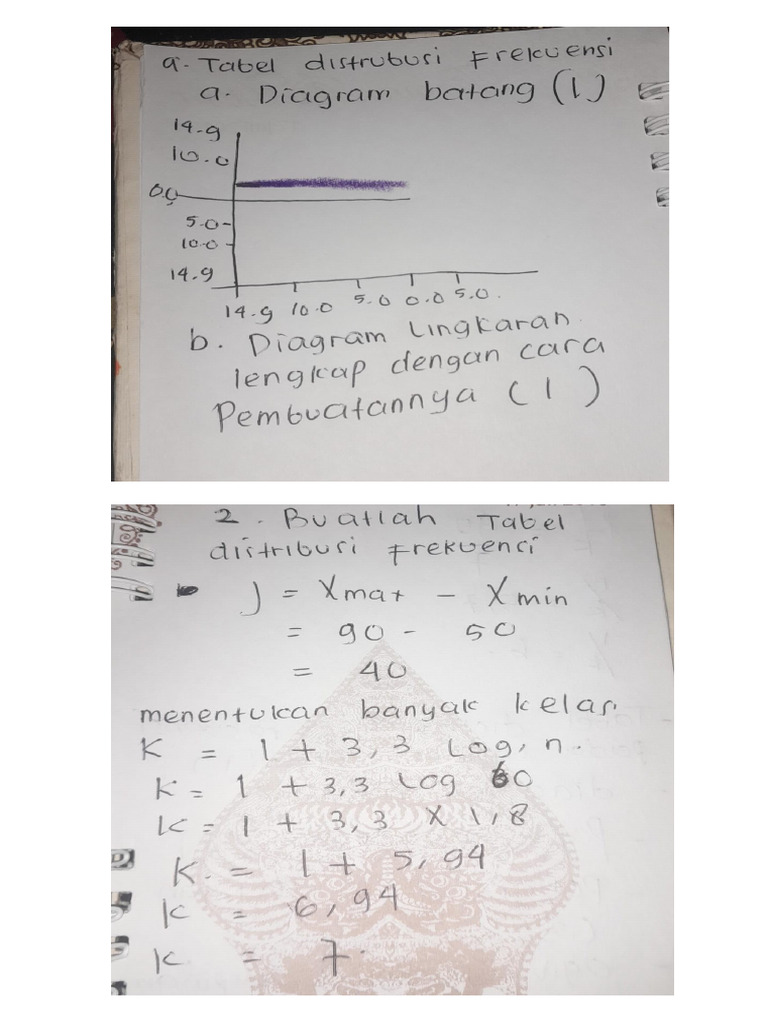 a. Tabel distrubusi Frekuensi
a. Diagram batang (1)
14.9
10.0
0.0
5.0
10.0
14.9
14.9 10.0 5.0 0.0 5.0
b. Diagram Lingkaran
lengkap dengan cara
Pembuatannya (1)
2. Buatlah Tabel
distribusi Frekuenci
J = Xmat - Xmin
= 90 - 50
= 40
menentukan banyak kelas.
K = 1 + 3,3 Log, n.
K = 1 + 3,3 Log 60
K = 1 + 3,3 X 1,8
K. = 1 + 5,94
K = 6,94
K = 7.